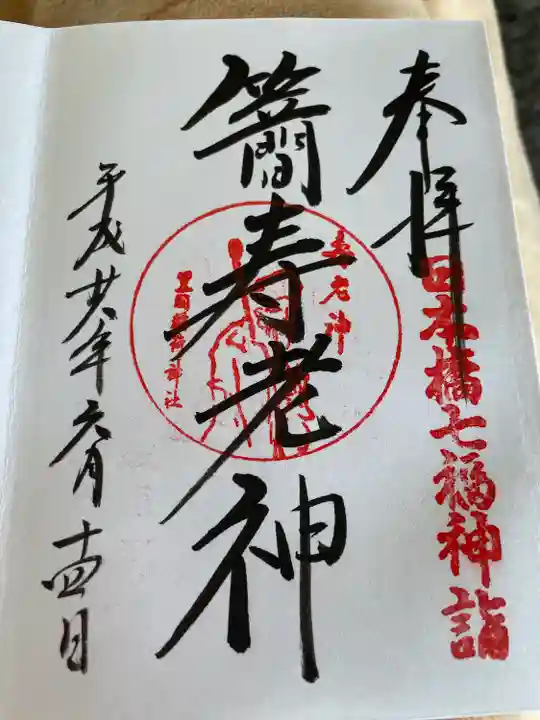 奉拝
日本橋七福神詣
笠間寿老神
寿老神
笠間稲荷神社
平成廿六年六月十四日